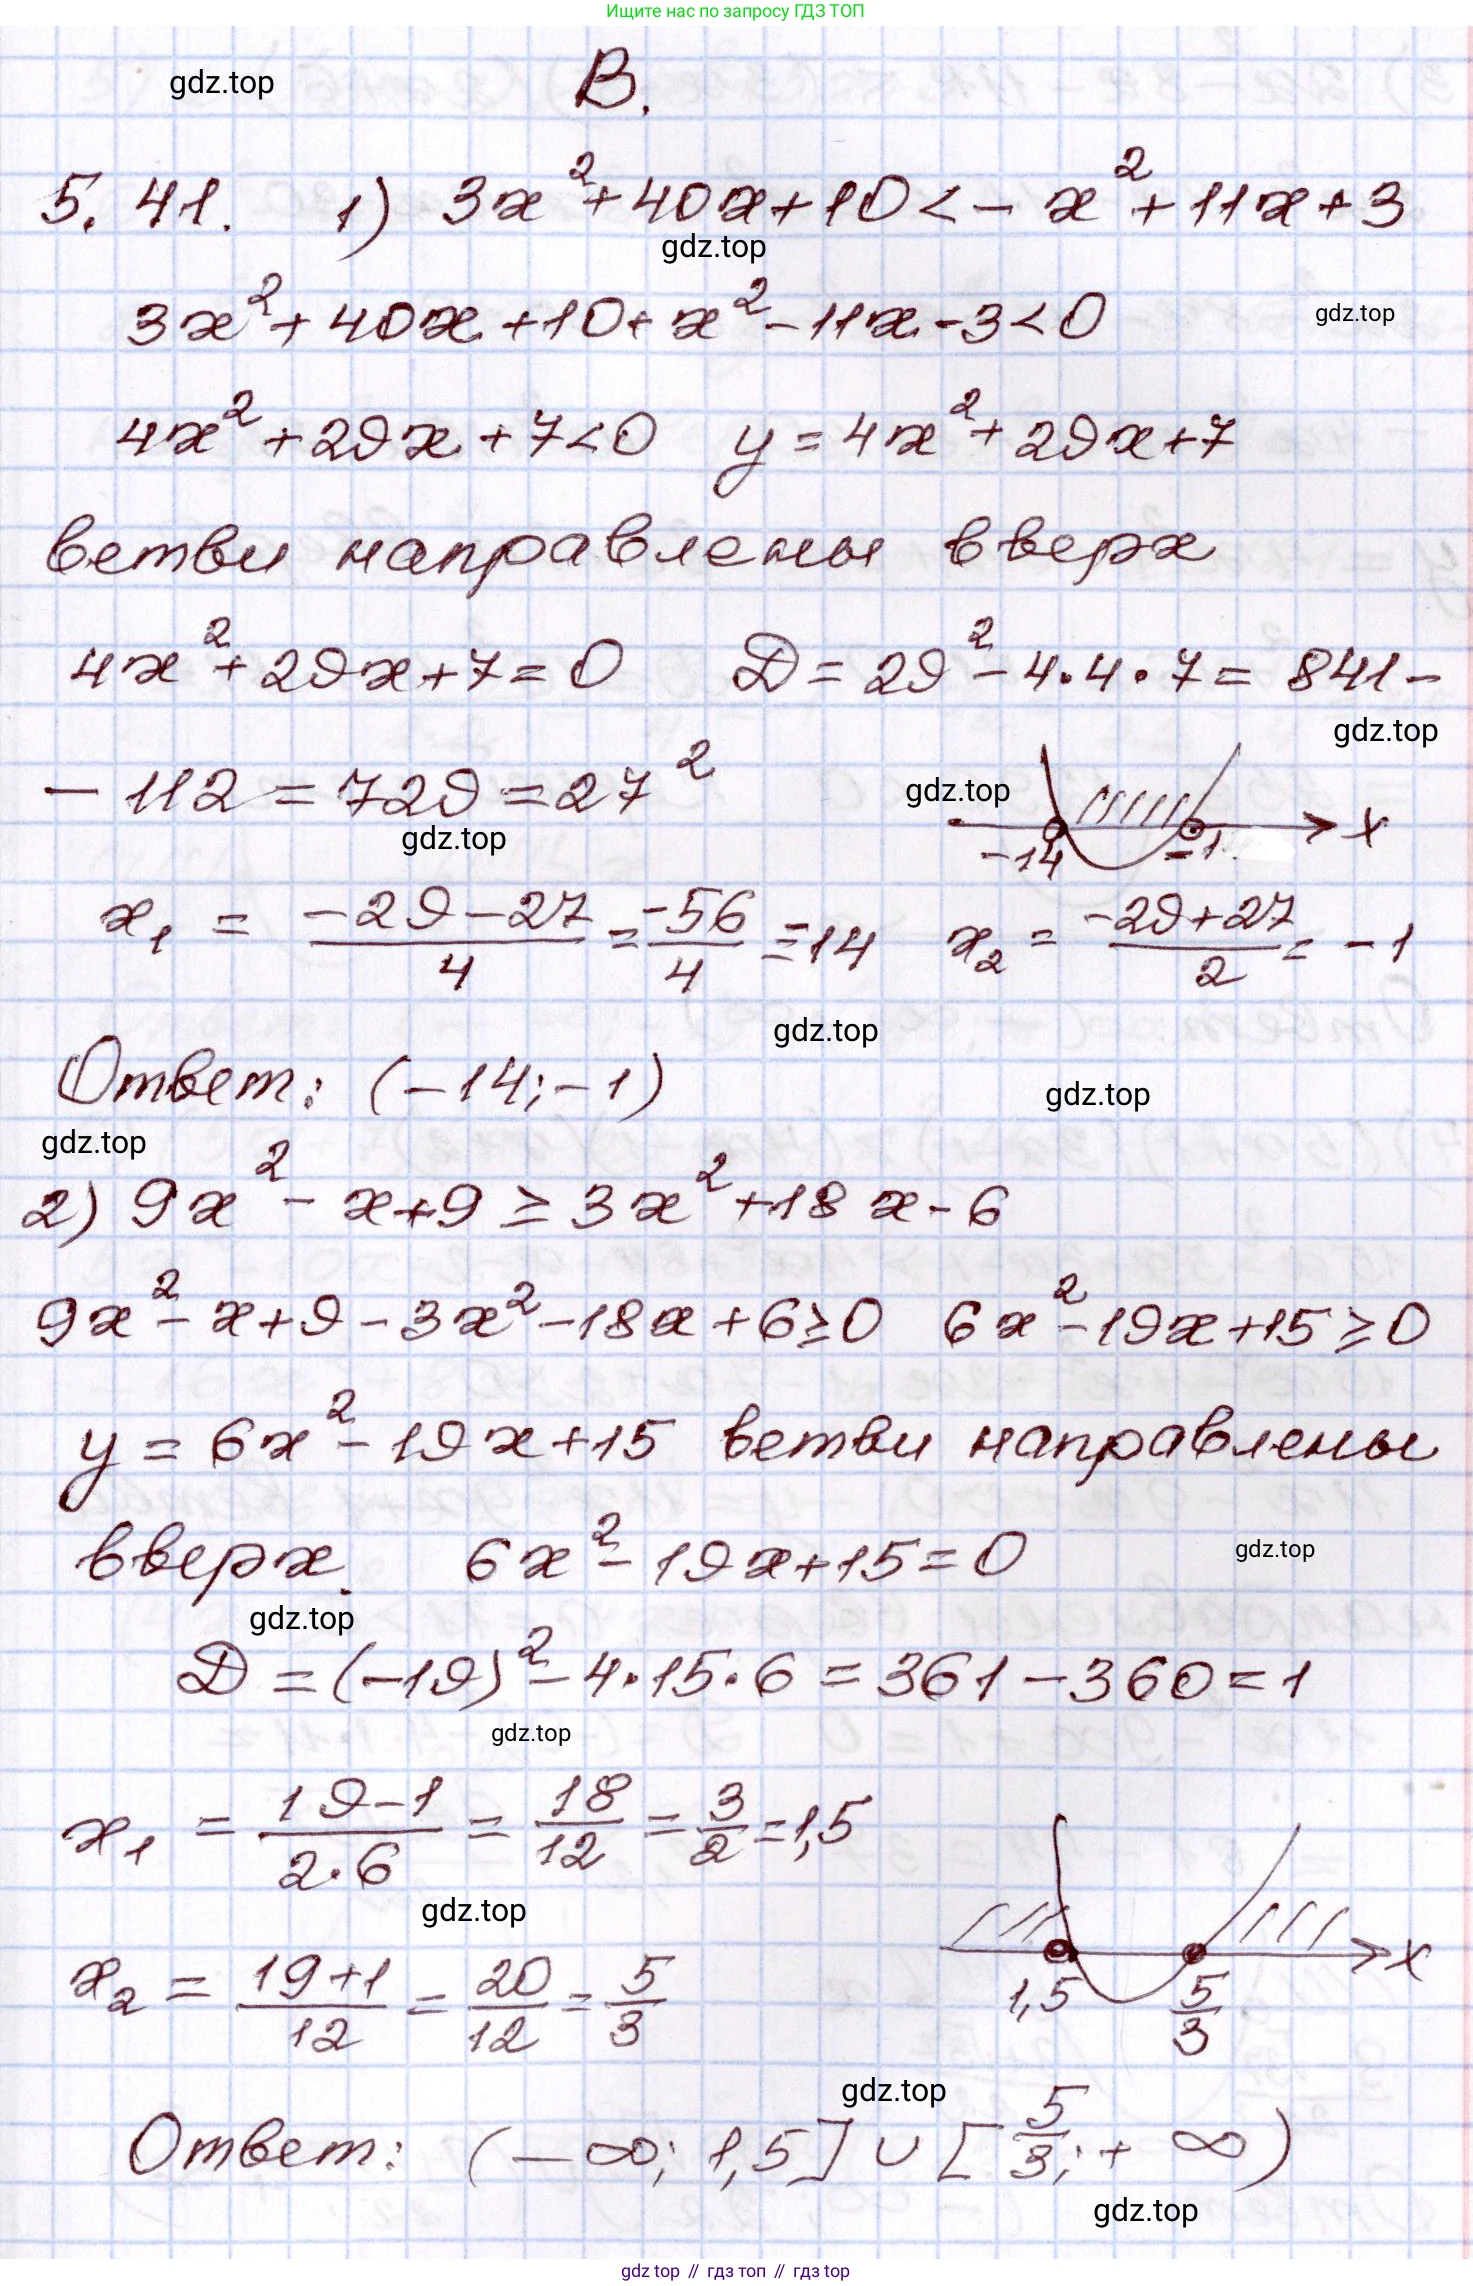 Ищите нас по запросу ГДЗ ТОП
gdz.top
В.
5.41. 1) 3x²+40x+10<-x²+11x+3
gdz.top
3x²+40x+10+x²-11x-3<0
gdz.top
4x²+29x+7<0 y=4x²+29x+7
ветви направлены вверх
4x²+29x+7=0 D=29²-4·4·7=841-
gdz.top
-112=729=27²
gdz.top
gdz.top
-14 -1 x
x₁ = (-29-27)/4 = -56/4 = -14 x₂ = (-29+27)/2 = -1
gdz.top
Ответ: (-14;-1)
gdz.top
gdz.top
2) 9x²-x+9≥3x²+18x-6
9x²-x+9-3x²-18x+6≥0 6x²-19x+15≥0
y=6x²-19x+15 ветви направлены
вверх. 6x²-19x+15=0
gdz.top
gdz.top
D=(-19)²-4·15·6=361-360=1
gdz.top
x₁ = (19-1)/(2·6) = 18/12 = 3/2 = 1,5
gdz.top
x₂ = (19+1)/12 = 20/12 = 5/3
1,5 5/3 x
gdz.top
Ответ: (-∞; 1,5]∪[5/3;+∞)
gdz.top
gdz top // гдз топ // gdz top